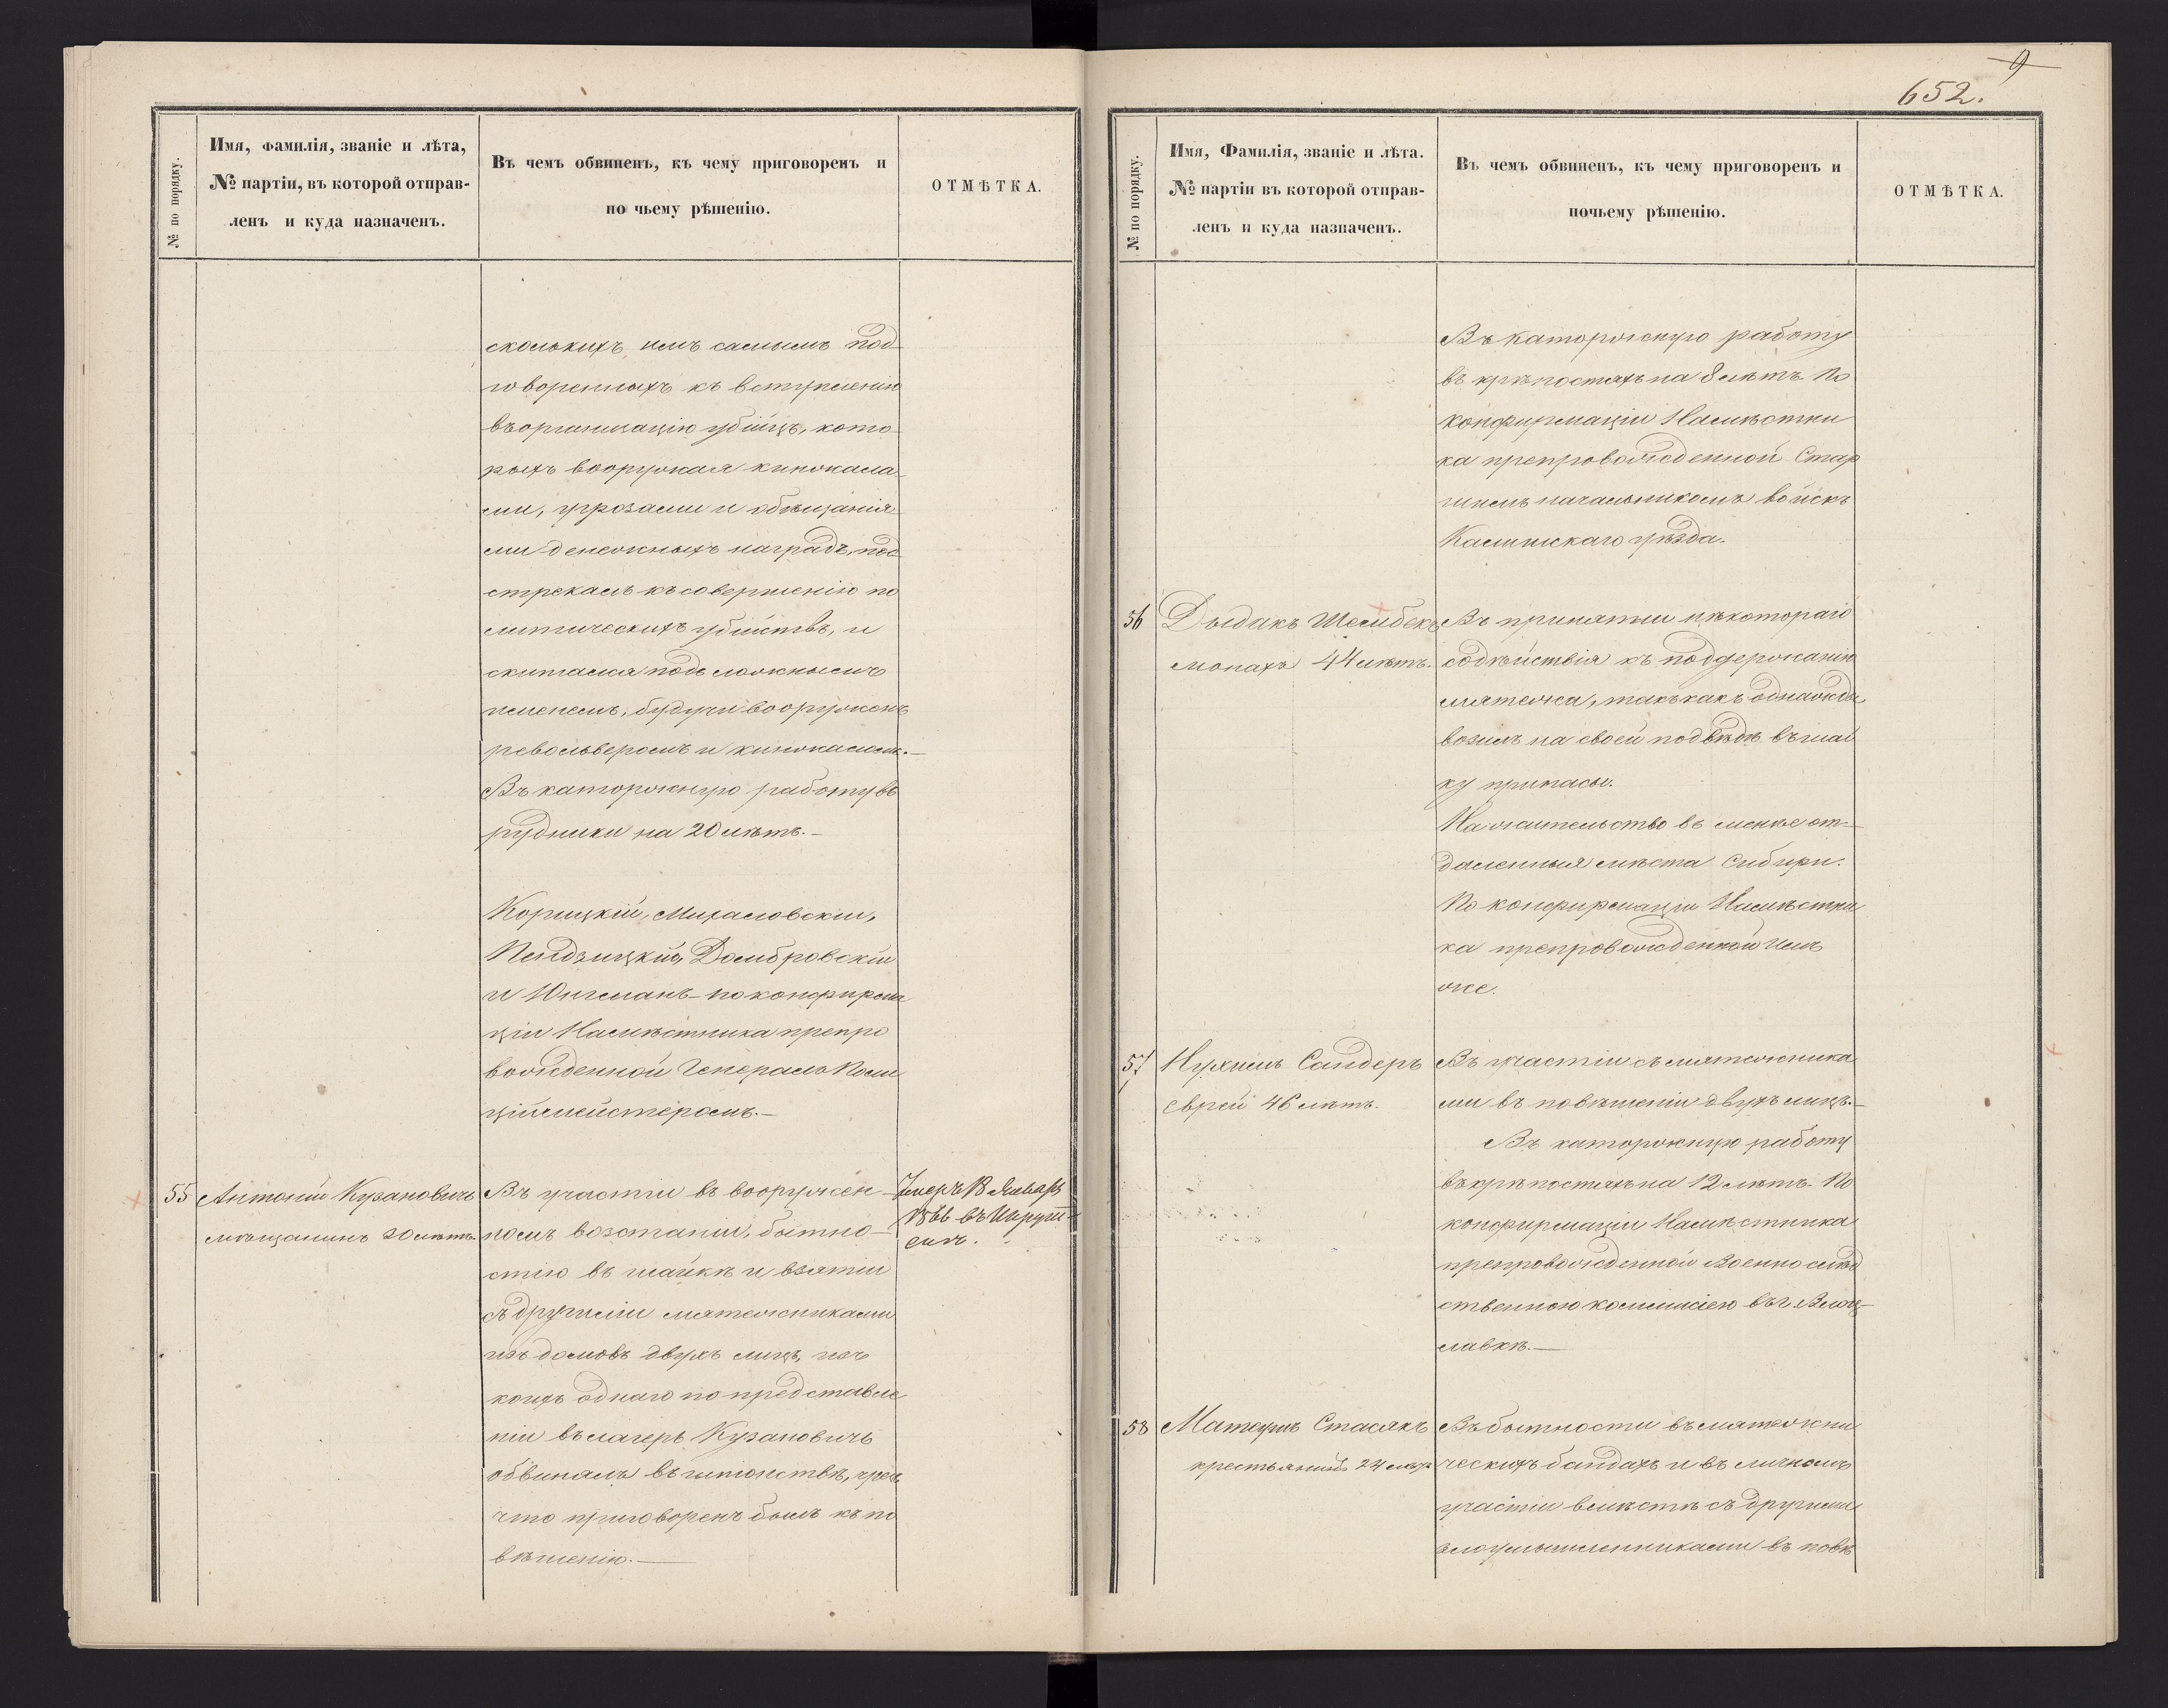 № по порядку.
Имя, фамилія, званіе и лѣта,
№ партіи, въ которой отправ-
ленъ и куда назначенъ.
Въ чемъ обвиненъ, къ чему приговоренъ и
по чьему рѣшенію.
ОТМѢТКА.
сколькихъ, имъ самымъ под-
говоренныхъ къ вступленію
въ организацію убійцъ, кото-
рыхъ вооружая кинжала-
ми, угрозами и обѣщанія-
ми денежныхъ наградъ, под
стрекалъ къ совершенію по
литическихъ убійствъ, и
скитался подъ ложнымъ
именемъ, будучи вооруженъ
револьверомъ и кинжаломъ.—
Въ каторожную работу въ
рудники на 20 лѣтъ.—
Корицкій, Михаловскій,
Пендзицкій, Домбровскій
и Юнгманъ—по конфирма
ціи Намѣстника препро
вожденной Генералъ Поли
ційместеромъ.—
55 Антоній Кузановичъ
мѣщанинъ 20 лѣтъ.
Въ участіи въ вооружен-
номъ возстаніи, бытно-
стію въ шайкѣ и взятіи
съ другими мятежниками
изъ домовъ двухъ лицъ, изъ
коихъ однаго по представле
ніи въ лагерь Кузановичъ
обвинялъ въ шпіонствѣ, чрез
что приговоренъ былъ къ по
вѣшенію.—
Умеръ 18 Января
1866 въ
652. 9
№ по порядку.
Имя, Фамилія, званіе и лѣта.
№ партіи въ которой отправ-
ленъ и куда назначенъ.
Въ чемъ обвиненъ, къ чему приговоренъ и
почьему рѣшенію.
ОТМѢТКА.
Въ каторожную работу
въ крѣпостяхъ на 8 лѣтъ. По
конфирмаціи Намѣстни
ка препровожденной Стар
шимъ начальникомъ войскъ
Калишскаго уѣзда.
56 Дыдакъ Шембекъ
монахъ 44 лѣтъ.
Въ принятіи нѣкотораго
содѣйствія къ поддержанію
мятежа, такъ какъ однажды
возилъ на своей подводѣ въ шай
ку припасы.
На жительство въ менѣе от-
даленныя мѣста Сибири.
По конфирмаціи Намѣстни
ка препровожденной имъ
же.
57 Нухимъ Сандеръ
еврей 46 лѣтъ.
Въ участіи съ мятежника
ми въ повѣшеніи двухъ лицъ.—
Въ каторожную работу
въ крѣпостяхъ на 12 лѣтъ. По
конфирмаціи Намѣстника
препровожденной Военно слѣд
ственною коммисіею въ г. Влоц-
лавкѣ.—
58 Матеушъ Стасякъ
крестьянинъ 24 лѣтъ
Въ бытности въ мятежни
ческихъ бандахъ и въ личномъ
участіи вмѣстѣ съ другими
злоумышленниками въ повѣ